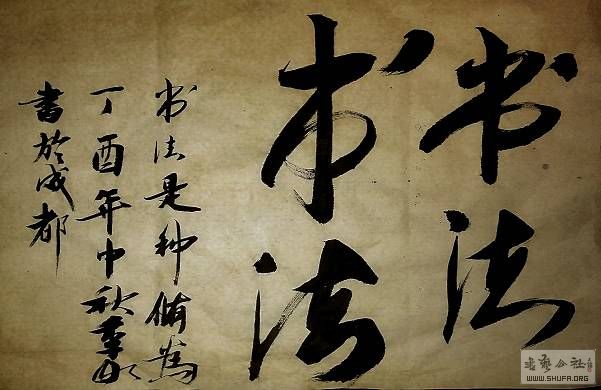 书法
书法
书法是种修为
丁酉年中秋
書於成都
书艺公社
WWW.SHUFA.ORG